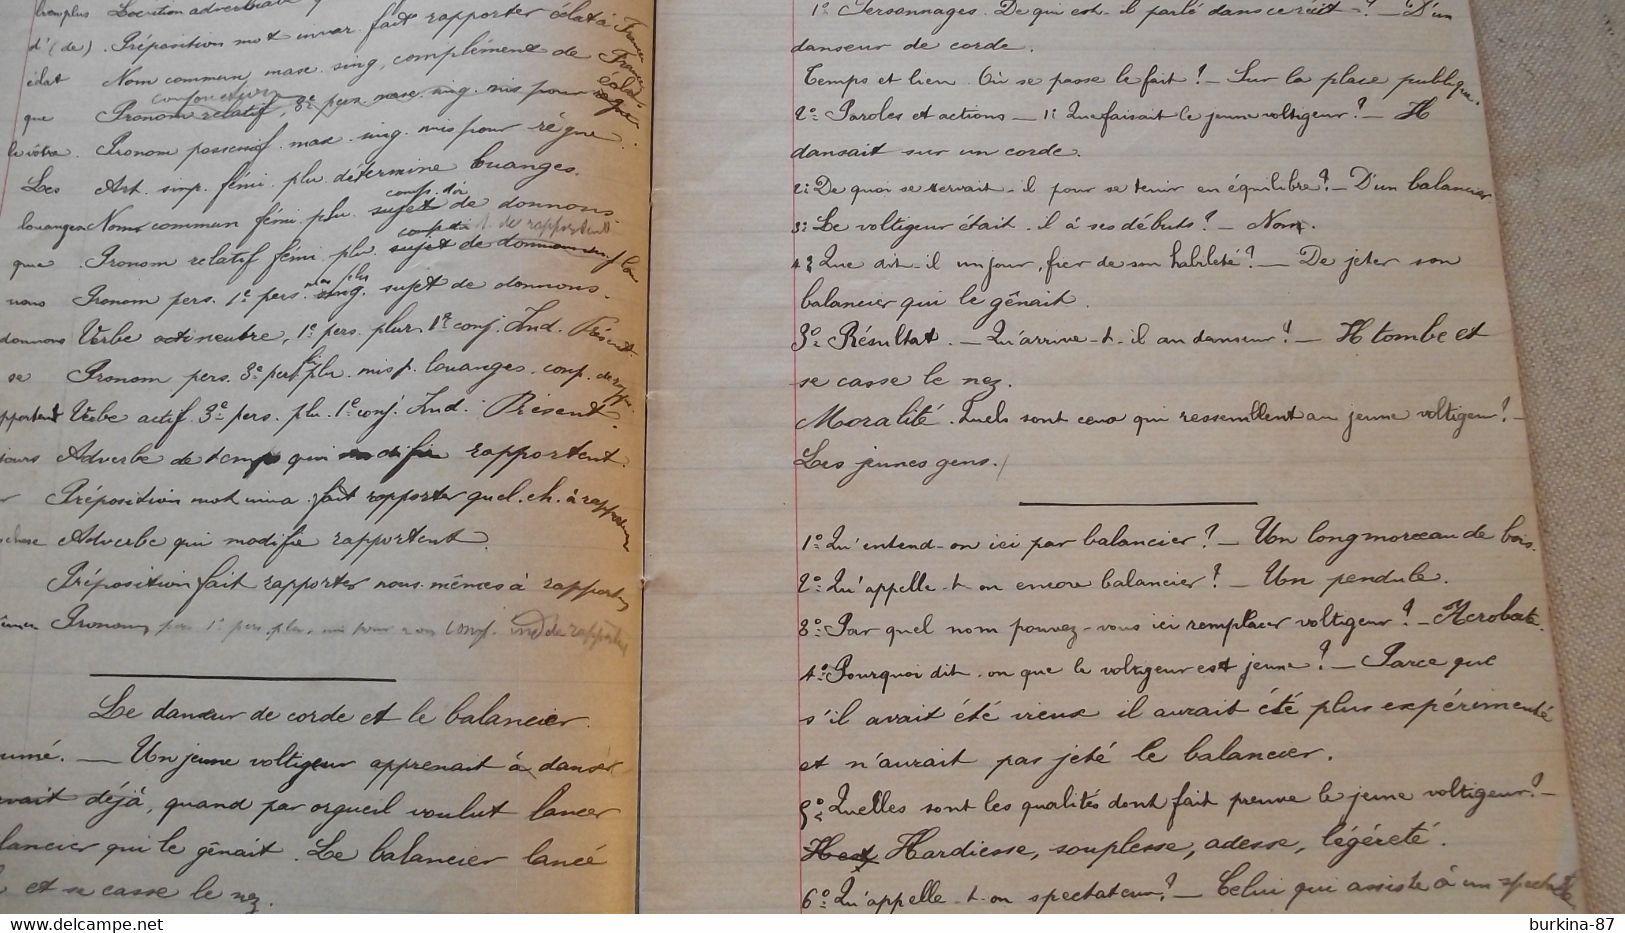 Locution adverbiale
d' (de). Préposition mot invar. fait rapporter éclat à France
éclat Nom commun masc. sing. complément de France
conjonction
que Pronom relatif, 3e pers. masc. sing. mis pour règne
le vôtre. Pronom possessif masc. sing. mis pour règne.
Les Art. simp. fémi. plu. détermine louanges.
comp. dir
louanges Nom commun fémi. plu. sujet de donnons.
comp. de rapportent
que Pronom relatif fémi. plu. sujet de donnons
plu
nous Pronom pers. 1e pers. sing. sujet de donnons.
donnons Verbe acti neutre, 1e pers. plur. 1e conj. Ind. Présent.
se Pronom pers. 3e pers. plu. mis p. louanges. comp. de
Verbe actif 3e pers. plu. 1e conj. Ind. Présent.
Adverbe de temps qui modifie rapportent.
Préposition mot inva. fait rapporter quel. ch. à rapportent
Adverbe qui modifie rapportent.
Préposition fait rapporter nous-mêmes à rapportent
Pronom pers. 1e pers. plu. mis pour
Le danseur de corde et le balancier.
umé. — Un jeune voltigeur apprenait à danser
vait déjà, quand par orgueil voulut lancer
lancier qui le gênait. Le balancier lancé
et se casse le nez.
1° Personnages. De qui est-il parlé dans ce récit ? — D'un
danseur de corde.
Temps et lieu. Où se passe le fait ? — Sur la place publique.
2° Paroles et actions — 1: Que faisait le jeune voltigeur ? — Il
dansait sur un corde.
2: De quoi se servait-il pour se tenir en équilibre ? — D'un balancier
3: Le voltigeur était-il à ses débuts ? — Non.
4: Que dit-il un jour, fier de son habileté ? — De jeter son
balancier qui le gênait.
3° Résultat. — Qu'arrive-t-il au danseur ? — Il tombe et
se casse le nez.
Moralité. Quels sont ceux qui ressemblent au jeune voltigeur ? —
Les jeunes gens.
1° Qu'entend-on ici par balancier ? — Un long morceau de bois.
2° Qu'appelle-t-on encore balancier ? — Un pendule.
3° Par quel nom pouvez-vous ici remplacer voltigeur ? — Acrobate.
4° Pourquoi dit-on que le voltigeur est jeune ? — Parce que
s'il avait été vieux il aurait été plus expérimenté
et n'aurait pas jeté le balancier.
5° Quelles sont les qualités dont fait preuve le jeune voltigeur ? —
Hardiesse, souplesse, adesse, légéreté.
6° Qu'appelle-t-on spectateur ? — Celui qui assiste à un spectacle
burkina-87